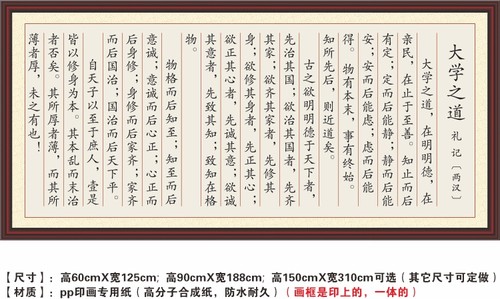 大学之道 礼记〔两汉〕
大学之道，在明明德，在
亲民，在止于至善。知止而后
有定；定而后能静；静而后能
安；安而后能虑；虑而后能
得。物有本末，事有终始。
知所先后，则近道矣。
古之欲明明德于天下者，
先治其国；欲治其国者，先齐
其家；欲齐其家者，先修其
身；欲修其身者，先正其心；
欲正其心者，先诚其意；欲诚
其意者，先致其知；致知在格
物。
物格而后知至；知至而后
意诚；意诚而后心正；心正而
后身修；身修而后家齐；家齐
而后国治；国治而后天下平。
自天子以至于庶人，壹是
皆以修身为本。其本乱而末治
者否矣。其所厚者薄，而其所
薄者厚，未之有也！
【尺寸】：高60cmX宽125cm; 高90cmX宽188cm; 高150cmX宽310cm可选（其它尺寸可定做）
【材质】：pp印画专用纸（高分子合成纸，防水耐久）（画框是印上的，一体的）